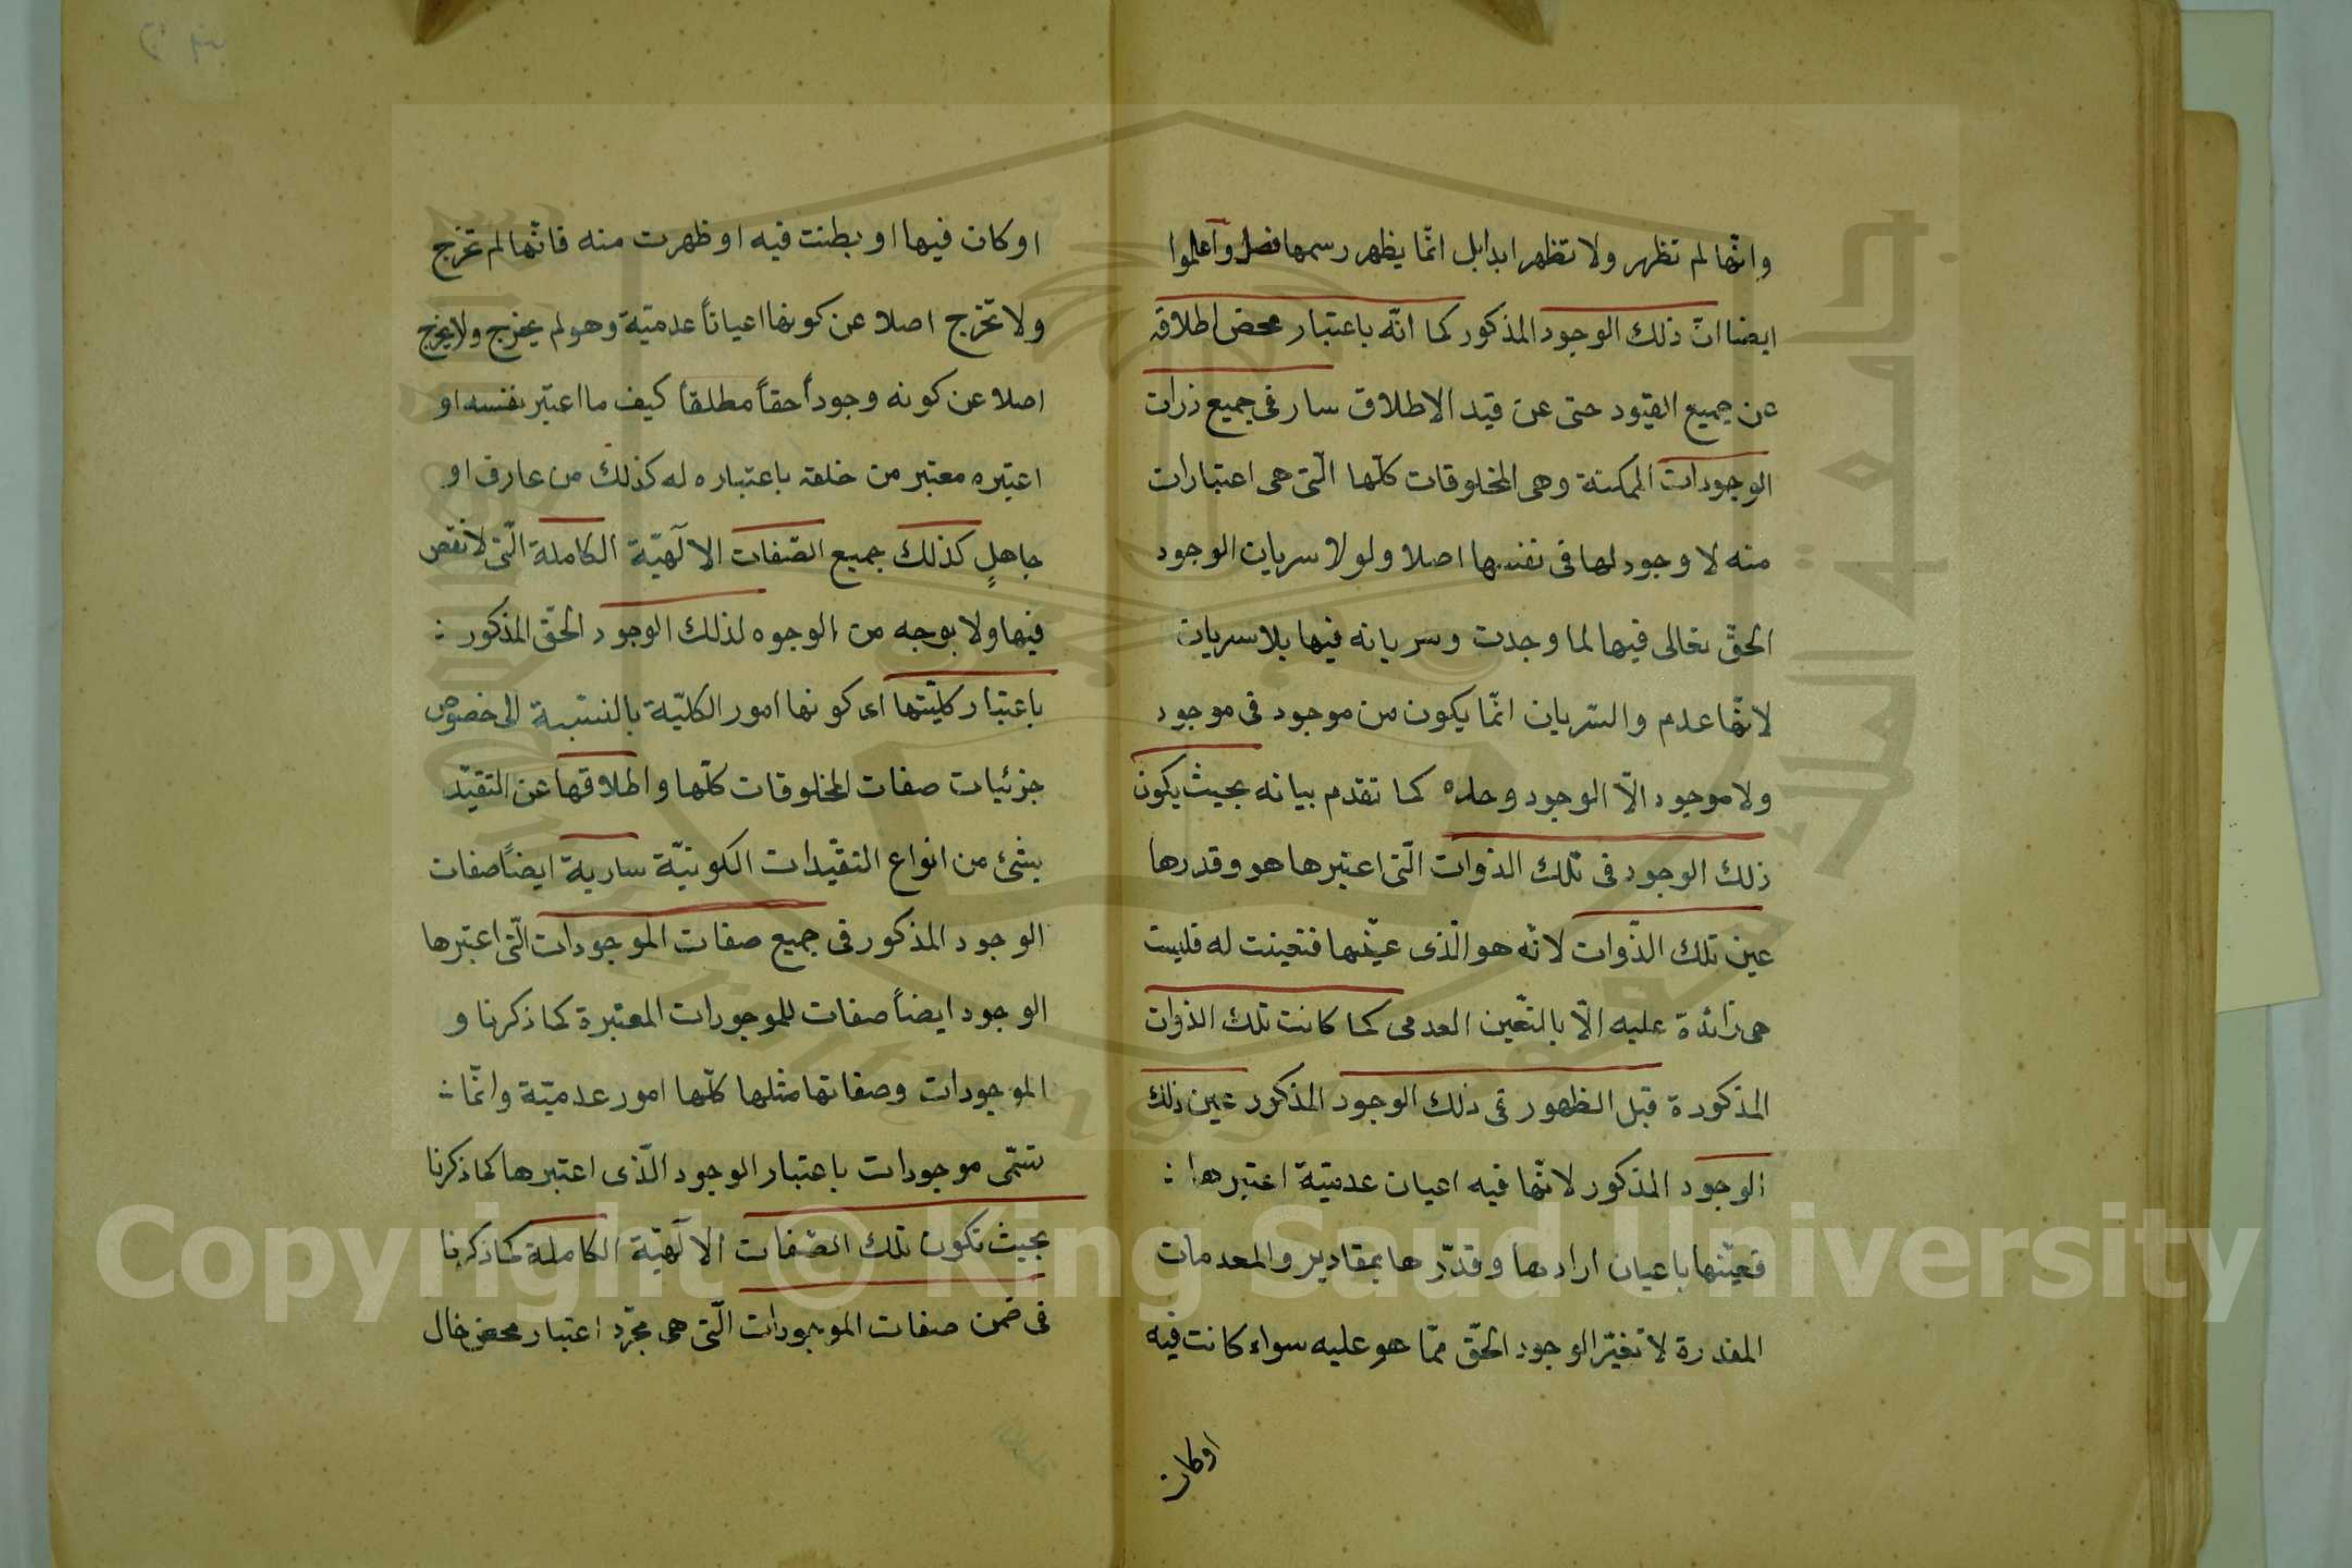 وانّها لم تظهر ولا تظهر ابدا بل انّما يظهر رسمها فصل وآعلموا
ايضا انّ ذلك الوجود المذكور كما انّه باعتبار محض اطلاقه
عن جميع القيود حتى عن قيد الاطلاق سار فى جميع ذرات
الوجودات الممكنة وهى المخلوقات كلّها الّتى هى اعتبارات
منه لا وجود لها فى نفسها اصلا ولولا سريان الوجود
الحقّ تعالى فيها لما وجدت وسريانه فيها بلا سريان
لانّها عدم والسّريان انّما يكون من موجود فى موجود
ولا موجود الّا الوجود وحده كما تقدم بيانه بحيث يكون
ذلك الوجود فى تلك الذوات الّتى اعتبرها هو وقدرها
عين تلك الذّوات لانّه هو الّذى عيّنها فتعينت له فليست
هى زائدة عليه الّا بالتعّين العدمى كما كانت تلك الذوات
المذكورة قبل الظهور فى ذلك الوجود المذكور عين ذلك
الوجود المذكور لانّها فيه اعيان عدميّة اعتبرها :
فعيّنها باعيان ارادها وقدّرها بمقادير والمعدمات
المقدرة لا تغيّر الوجود الحقّ ممّا هو عليه سواء كانت فيه
اوكان
اوكان فيها او بطنت فيه او ظهرت منه فانّها لم تخرج
ولا تخرج اصلا عن كونها اعياناً عدميّة وهو لم يخرج ولا يخرج
اصلا عن كونه وجوداً حقاً مطلقاً كيف ما اعتبر نفسه او
اعتبره معتبر من خلقه باعتباره له كذلك من عارف او
جاهلٍ كذلك جميع الصّفات الالٓهيّة الكاملة الّتى لا نقص
فيها ولا بوجه من الوجوه لذلك الوجود الحقّ المذكور :
باعتبار كليّتها اى كونها امور الكليّة بالنسبة الى خصوص
جزئيات صفات المخلوقات كلّها واطلاقها عن التقيّد
بشئ من انواع التقيّدات الكونيّة سارية ايضاً صفات
الوجود المذكور فى جميع صفات الموجودات الّتى اعتبرها
الوجود ايضاً صفات للموجودات المعتبرة كما ذكرنا و
الموجودات وصفاتها مثلها كلّها امور عدميّة وانّما :
تسّمى موجودات باعتبار الوجود الّذى اعتبرها كما ذكرنا
بحيث تكون تلك الصّفات الالٓهيّة الكاملة كما ذكرنا
فى ضمن صفات الموجودات الّتى هى مجرّد اعتبار محض خال
Copyright © King Saud University